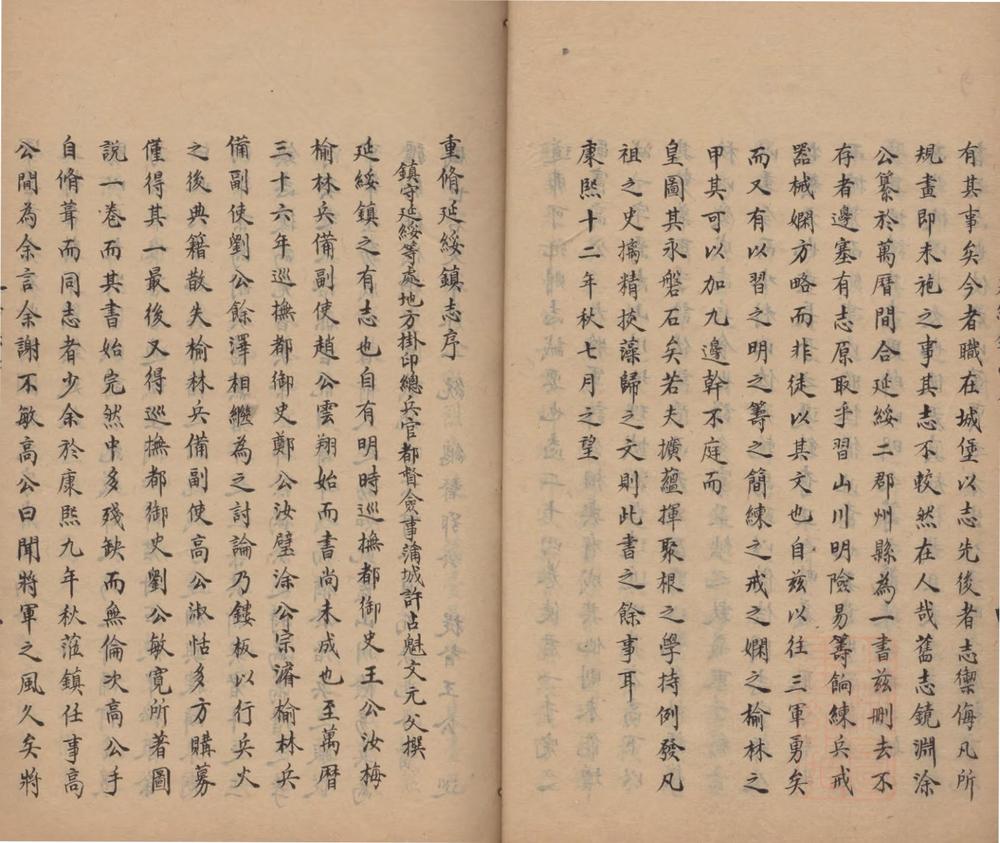 有其事矣今者職在城堡以志先後者志禦侮凡所
規畫即未施之事其志不較然在人哉舊志鏡淵涂
公纂於萬曆間合延綏二郡州縣為一書茲刪去不
存者邊塞有志原取乎習山川明險易籌餉練兵戒
器械嫻方略而非徒以其文也自茲以往三軍勇矣
而又有以習之明之籌之簡練之戒之嫻之榆林之
甲其可以加九邊幹不庭而
皇圖其永磐石矣若夫擴蘊揮聚根之學持例發凡
祖之史摛精掞藻歸之文則此書之餘事耳
康熙十二年秋七月之望
重脩延綏鎮志序
鎮守延綏等處地方掛印總兵官都督僉事蒲城許占魁文元父撰
延綏鎮之有志也自有明時巡撫都御史王公汝梅
榆林兵備副使趙公雲翔始而書尚未成也至萬曆
三十六年巡撫都御史鄭公汝璧涂公宗濬榆林兵
備副使劉公餘澤相繼為之討論乃鏤板以行兵火
之後典籍散失榆林兵備副使高公淑怙多方購募
僅得其一最後又得巡撫都御史劉公敏寬所著圖
說一卷而其書始完然中多殘缺而無倫次高公手
自脩葺而同志者少余於康熙九年秋蒞鎮任事高
公間為余言余謝不敏高公曰聞將軍之風久矣將